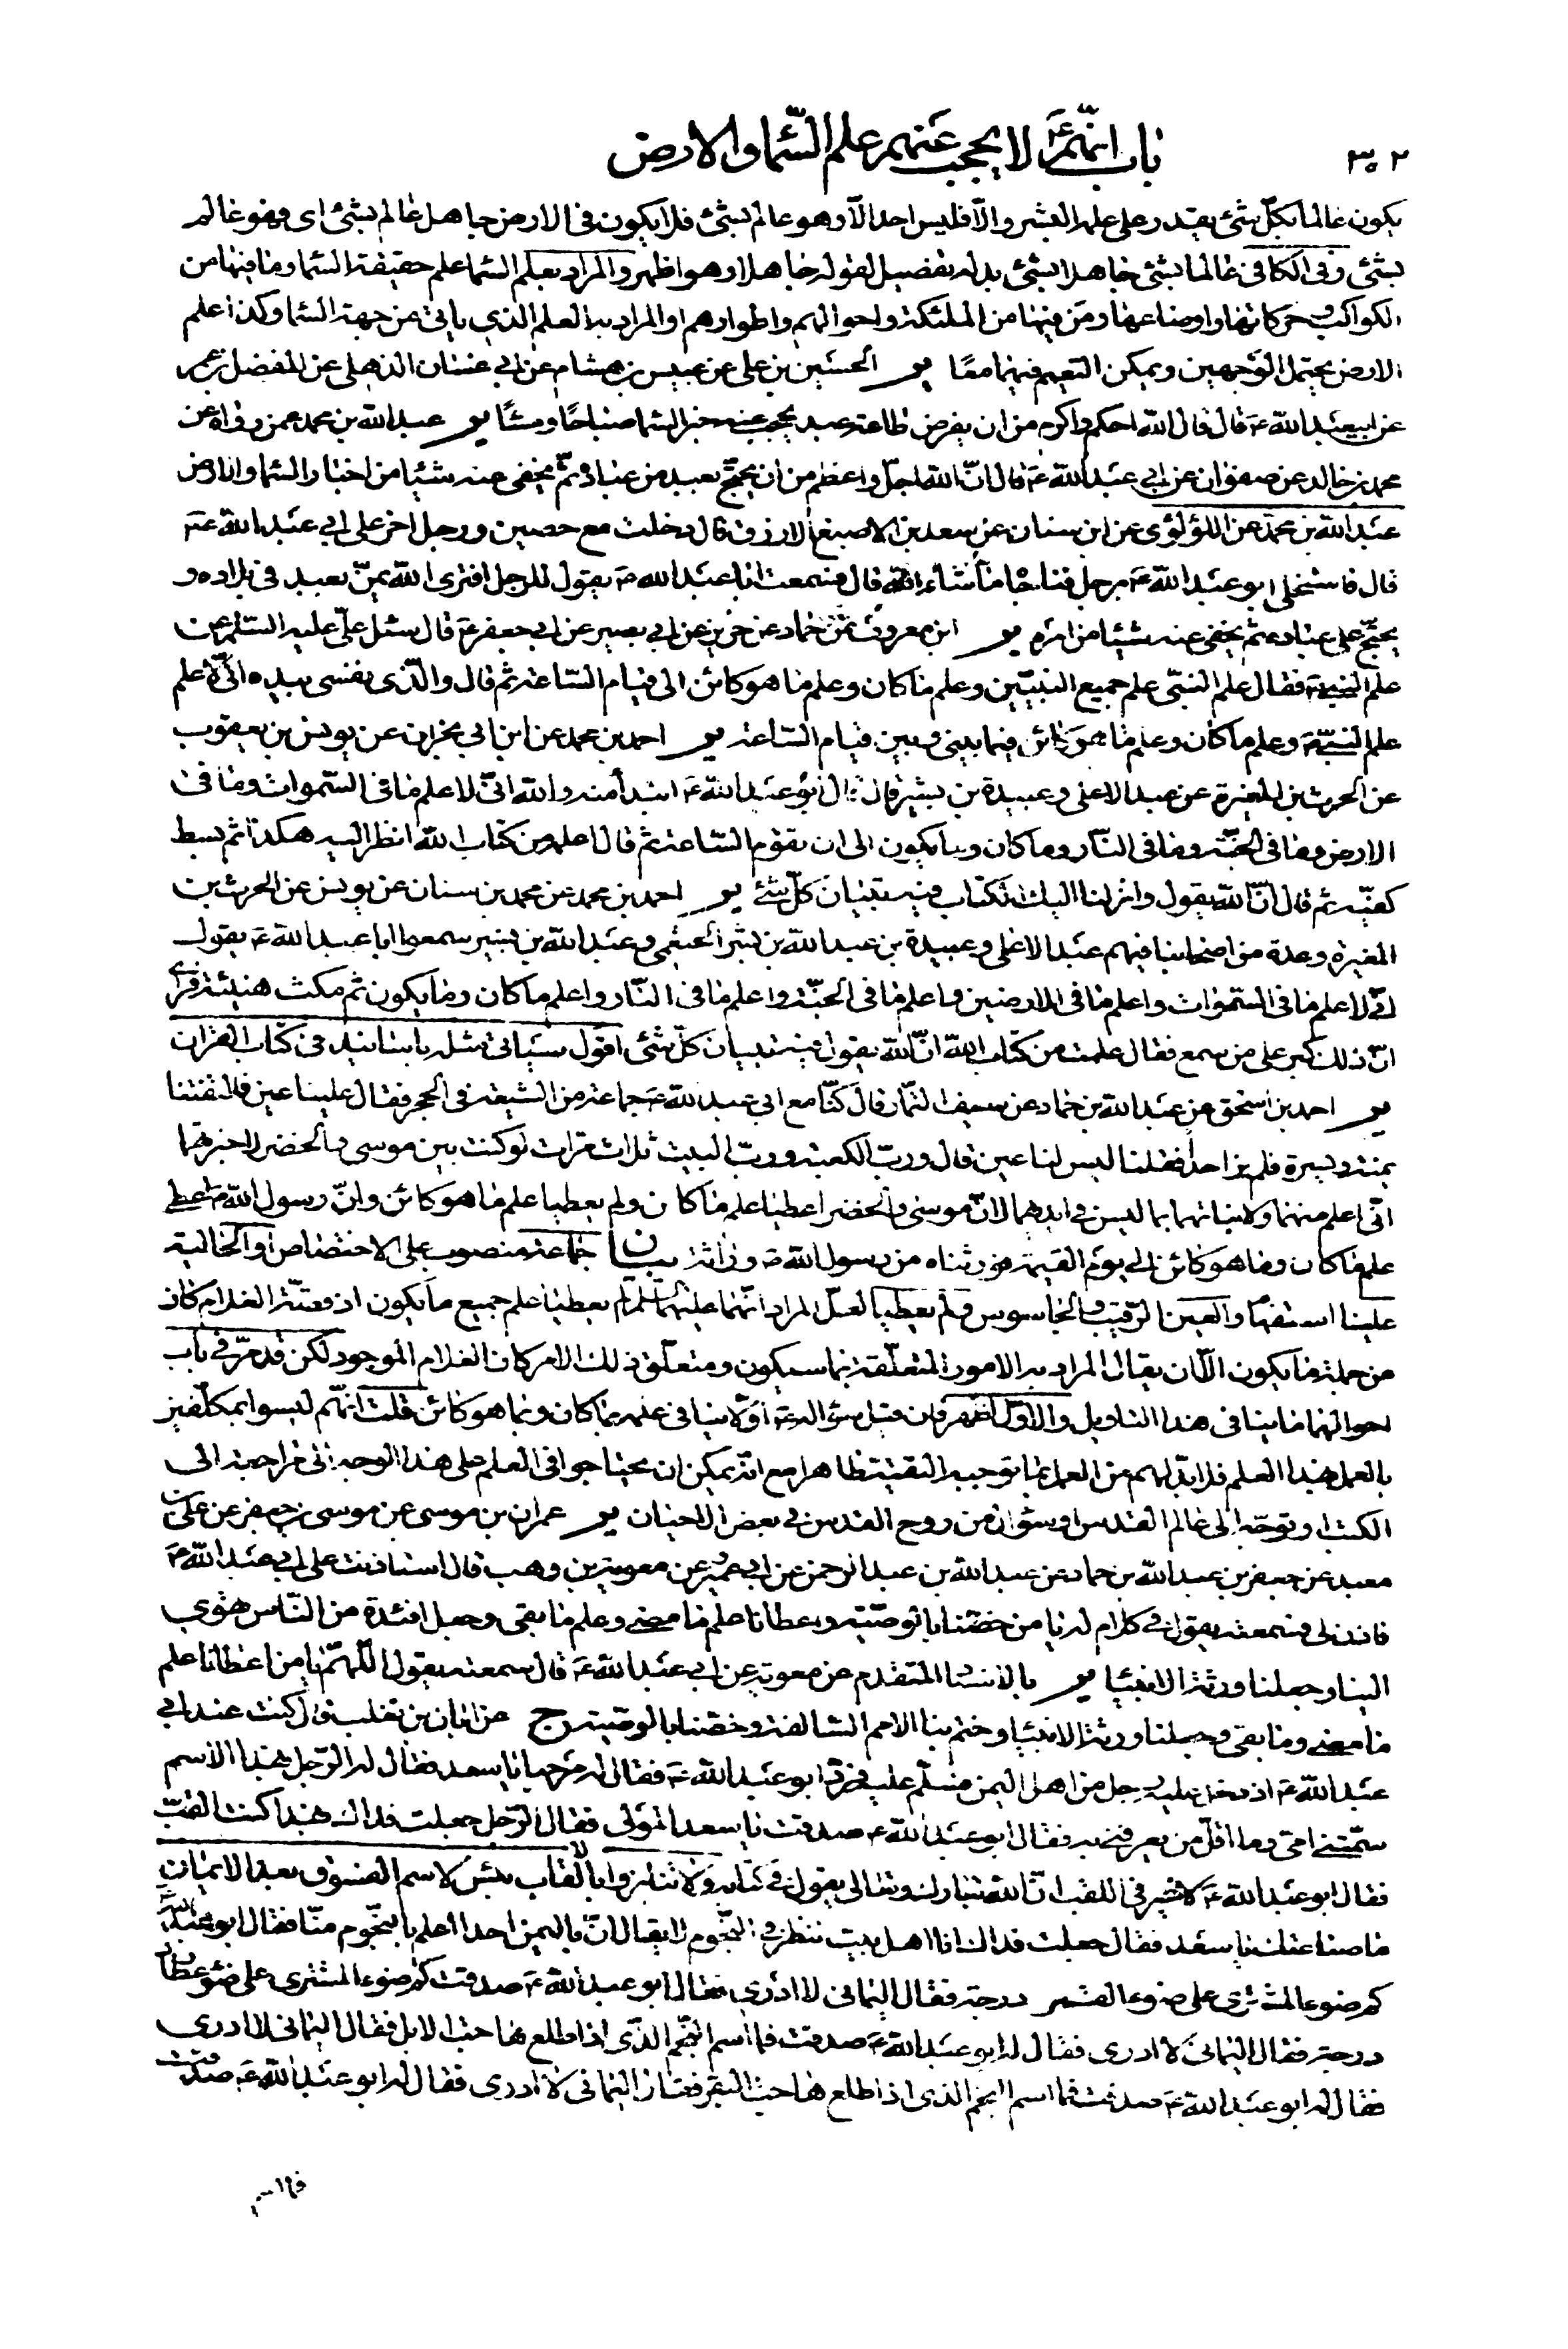 ٣٠٢
باب انّهم ع لا يحجب عنهم علم السّماء والارض
يكون عالما بكلّ شئ يقتدر على علمه البشر والّا فليس احد الّا وهو عالم بشئ فلا يكون فى الارض جاهل عالم بشئ اى فهو عالم
بشئ وفى الكافى عالما بشئ جاهلا بشئ بدله تفصيل لقوله جاهلا وهو اظهر والمراد بعلم السّماء علم حقيقة السّماء وما فيها من
الكواكب وحركاتها واوضاعها ومن فيها من الملئكة واحوالهم واطوارهم او المراد به العلم الذى ياتى من جهة السّماء وكذا علم
الارض يحتمل الوجهين ويمكن التعميم فيهما معًا ير الحسين بن على عن عبيس بن هشام عن ابى غسّان الذهلى عن المفضل بن عمر
عن ابيعبد الله ع قال قال الله احكم واكرم من ان يفرض طاعة عبد يحجب عنه خبر السّماء صباحًا ومساءً ير عبد الله بن محمد عمن رواه عن
محمد بن خالد عن صفوان عن ابى عبد الله ع قال انّ الله اجلّ واعظم من ان يحتجّ بعبد من عباده ثمّ يخفى عنه شيئا من اخبار السّماء والارض
عبد الله بن محمد عن اللؤلؤى عن ابن سنان عن سعد بن الاصبغ الازرق قال دخلت مع حصين ورجل اخر على ابى عبد الله ع
قال فاستخلى ابو عبد الله ع برجل فناجاه ما شاء الله قال فسمعت ابا عبد الله ع يقول للرجل افترى الله يمنّ بعبد فى بلاده و
يحتجّ على عباده ثم يخفى عنه شيئا من امره ير ابن معروف عن حماد عن حريز عن ابى بصير عن ابى جعفر ع قال سئل علىّ عليه السّلم عن
علم النبى ص فقال علم النبّى علم جميع النبيّين وعلم ما كان وعلم ما هو كائن الى قيام السّاعة ثم قال والّذى نفسى بيده انّى لاعلم
علم النبىّ ص وعلم ما كان وعلم ما هو كائن فيما بينى وبين قيام السّاعة ير احمد بن محمد عن ابن ابى نجران عن يونس بن يعقوب
عن الحرث بن المغيرة عن عبد الاعلى وعبيدة بن بشير قال قال ابو عبد الله ع ابتداءً منه والله انّى لاعلم ما فى السّموات وما فى
الارض وما فى الجنّة وما فى النّار وما كان وما يكون الى ان تقوم السّاعة ثم قال اعلمه من كتاب الله انظر اليه هكذا ثم بسط
كفّيه ثم قال انّ الله يقول وانزلنا اليك الكتاب فيه تبيان كلّ شئ ير احمد بن محمد عن محمد بن سنان عن يونس عن الحرث بن
المغيرة وعدة من اصحابنا فيهم عبد الاعلى وعبيدة بن عبد الله بن بشر الخثعمى وعبد الله بن بشير سمعوا ابا عبد الله ع يقول
انّى لاعلم ما فى السّموات واعلم ما فى الارضين واعلم ما فى الجنّة واعلم ما فى النّار واعلم ما كان وما يكون ثم مكث هنيئة فراى
انّ ذلك كبر على من سمع فقال علمت من كتاب الله انّ الله يقول فيه تبيان كلّ شئ اقول سيأتى مثله باسانيد فى كتاب القران
ير احمد بن اسحق عن عبد الله بن حماد عن سيف التمّار قال كنّا مع ابى عبد الله ع جماعة من الشيعة فى الحجر فقال علينا عين فالتفتنا
يمنة ويسرة فلم نر احدا فقلنا ليس لنا عين قال وربّ الكعبة وربّ البيت ثلاث مرّات لو كنت بين موسى والخضر لاخبرتهما
انّى اعلم منهما ولانباتهما بما ليس فى ايديهما لانّ موسى والخضر اعطيا علم ما كان ولم يعطيا علم ما هو كائن وانّ رسول الله ص اعطى
علم ما كان وما هو كائن الى يوم القيمة فورثناه من رسول الله ص وراثة بيان جماعة منصوب على الاختصاص او الحالية
علينا استفهام والعين الرّقيب والجاسوس ولم يعطيا لعلّ المراد انّهما عليهما السّلام لم يعطيا علم جميع ما يكون اذ قصّة الغلام كان
من جملة ما يكون الّا ان يقال المراد به الامور المتعلّقة بما سيكون ومتعلّق ذلك الامر كان الغلام الموجود لكن قد مرّ فى باب
احوالهما ما ينافى هذا التاويل والاوّل اظهر فان قيل سؤاله ع اوّلا ينافى علمه بما كان وبما هو كائن قلت انّهم ليسوا بمكلّفين
بالعمل بهذا العلم فلا بدّ لهم من العمل بما توجبه التقيّة ظاهرا مع انّه يمكن ان يحتاجوا فى العلم على هذا الوجه الى مراجعة الى
الكتب او توجّه الى عالم القدس او سؤال من روح القدس فى بعض الاحيان ير عمران بن موسى عن موسى بن جعفر عن على بن
معبد عن جعفر بن عبد الله بن حماد عن عبد الله بن عبد الرحمن عن ابى عمير عن معوية بن وهب قال استاذنت على ابى عبد الله ع
فاذن لى فسمعته يقول فى كلام له يا من خصّنا بالوصيّة واعطانا علم ما مضى وعلم ما بقى وجعل افئدة من النّاس تهوى
الينا وجعلنا ورثة الانبياء ير بالاسناد المتقدم عن معوية عن ابى عبد الله ع قال سمعته يقول اللّهمّ يا من اعطانا علم
ما مضى وما بقى وجعلنا ورثة الانبياء وختم بنا الامم السّالفة وخصّنا بالوصيّة ج عن ابان بن تغلب قال كنت عند ابى
عبد الله ع اذ دخل عليه رجل من اهل اليمن فسلّم عليه فردّ ابو عبد الله ع فقال له مرحبا يا سعد فقال له الرّجل بهذا الاسم
سمّتنى امّى وما اقلّ من يعرفنى به فقال ابو عبد الله ع صدقت يا سعد المولى فقال الرّجل جعلت فداك بهذا كنت القّب
فقال ابو عبد الله ع لا خير فى اللقب انّ الله تبارك وتعالى يقول فى كتابه ولا تنابزوا بالالقاب بئس الاسم الفسوق بعد الايمان
ما صناعتك يا سعد فقال جعلت فداك انا اهل بيت ننظر فى النّجوم لا يقال انّ باليمن احدا اعلم بالنّجوم منّا فقال ابو عبد الله ع
كم ضوء المشترى على ضوء القمر درجة فقال اليمانى لا ادرى فقال ابو عبد الله ع صدقت كم ضوء المشترى على ضوء عطارد
درجة فقال اليمانى لا ادرى فقال له ابو عبد الله ع صدقت فما اسم النّجم الذى اذا طلع هاجت الابل فقال اليمانى لا ادرى
فقال له ابو عبد الله ع صدقت فما اسم النجم الذى اذا طلع هاجت البقر فقال اليمانى لا ادرى فقال له ابو عبد الله ع صدقت